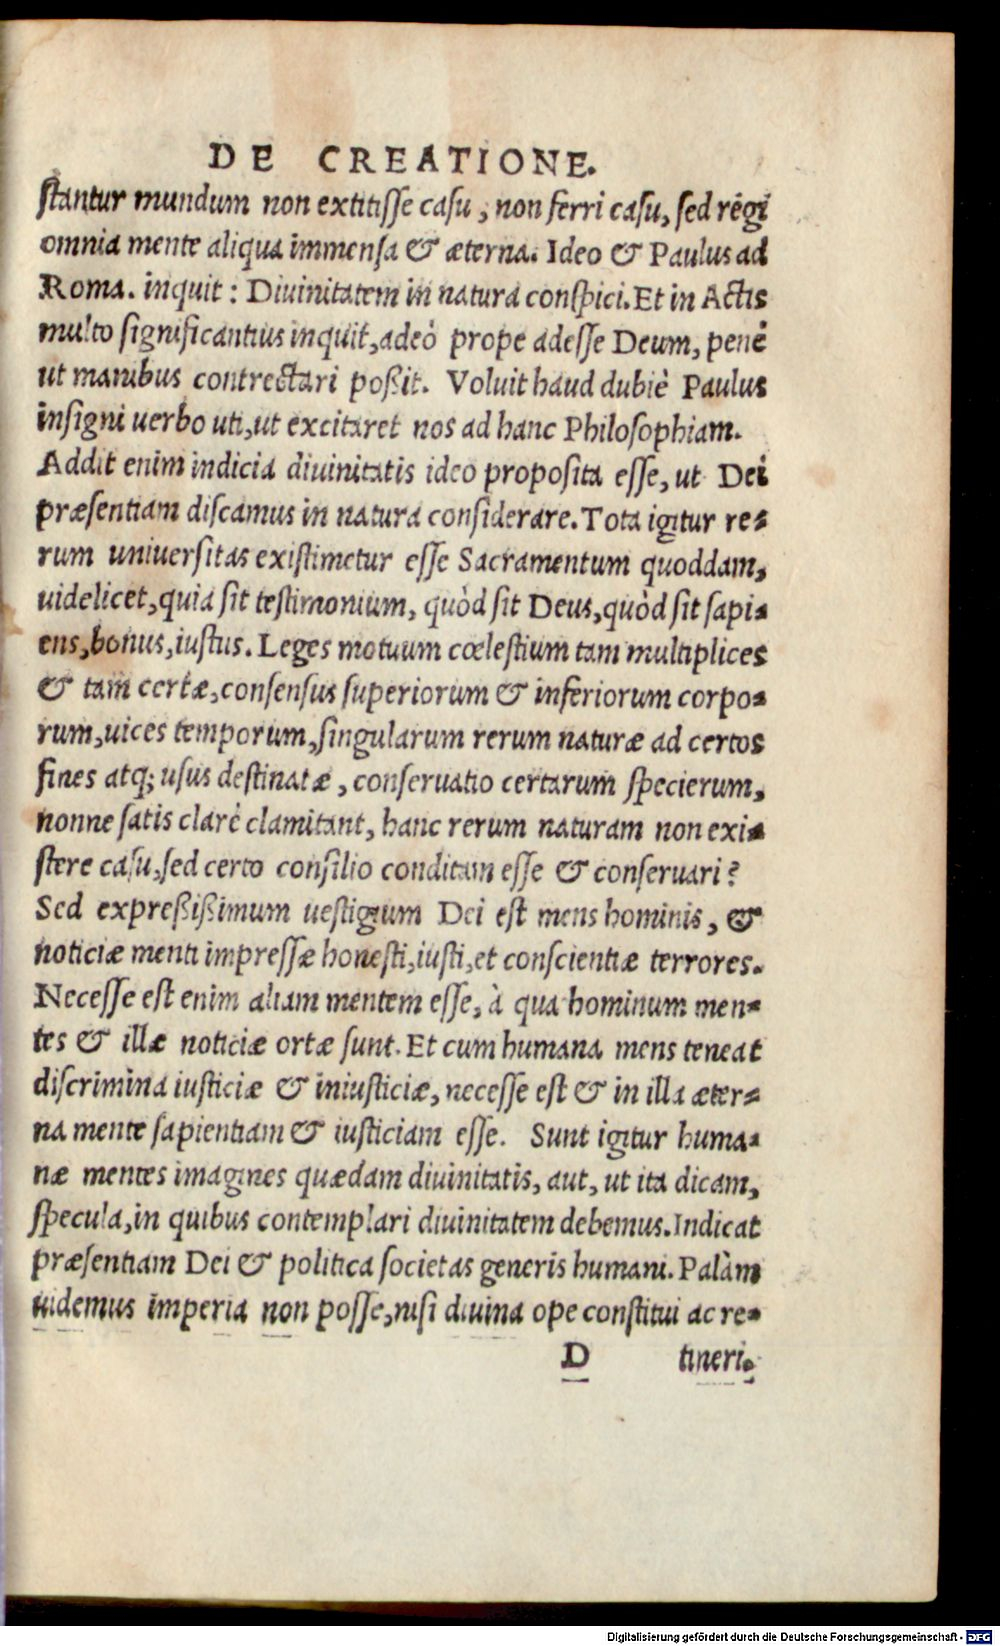 DE CREATIONE.
stantur mundum non extitisse casu, non ferri casu, sed regi
omnia mente aliqua immensa & æterna. Ideo & Paulus ad
Roma. inquit: Diuinitatem in natura conspici. Et in Actis
multo significantius inquit, adeò prope adesse Deum, penè
ut manibus contrectari poßit. Voluit haud dubiè Paulus
insigni uerbo uti, ut excitaret nos ad hanc Philosophiam.
Addit enim indicia diuinitatis ideo proposita esse, ut Dei
præsentiam discamus in natura considerare. Tota igitur re-
rum uniuersitas existimetur esse Sacramentum quoddam,
uidelicet, quia sit testimonium, quòd sit Deus, quòd sit sapi-
ens, bonus, iustus. Leges motuum cœlestium tam multiplices
& tam certæ, consensus superiorum & inferiorum corpo-
rum, uices temporum, singularum rerum naturæ ad certos
fines atq; usus destinatæ, conseruatio certarum specierum,
nonne satis clarè clamitant, hanc rerum naturam non exi-
stere casu, sed certo consilio conditam esse & conseruari?
Sed expreßißimum uestigium Dei est mens hominis, &
noticiæ menti impressæ honesti, iusti, et conscientiæ terrores.
Necesse est enim aliam mentem esse, à qua hominum men-
tes & illæ noticiæ ortæ sunt. Et cum humana mens teneat
discrimina iusticiæ & iniusticiæ, necesse est & in illa æter-
na mente sapientiam & iusticiam esse. Sunt igitur huma-
næ mentes imagines quædam diuinitatis, aut, ut ita dicam,
specula, in quibus contemplari diuinitatem debemus. Indicat
præsentiam Dei & politica societas generis humani. Palàm
uidemus imperia non posse, nisi diuina ope constitui ac re-
D tineri.
Digitalisierung gefördert durch die Deutsche Forschungsgemeinschaft - DFG